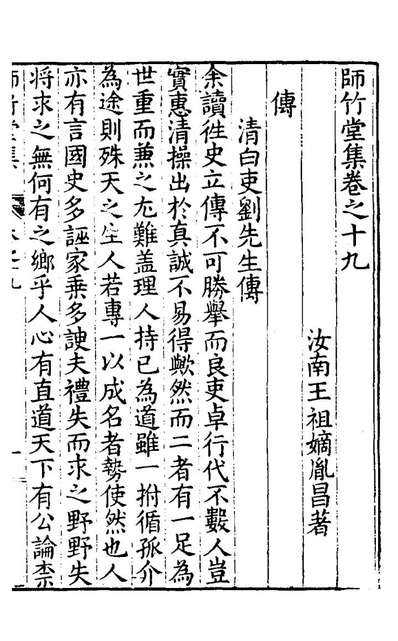 師竹堂集卷之十九
汝南王祖嫡胤昌著
傳
清白吏劉先生傳
余讀徃史立傳不可勝舉而良吏卓行代不數人豈
實惠清操出於真誠不易得歟然而二者有一足為
世重而兼之尤難盖理人持已為道雖一拊循孤介
為途則殊天之生人若專一以成名者勢使然也人
亦有言國史多誣家乗多諛夫禮失而求之野野失
將求之無何有之鄉乎人心有直道天下有公論柰
師竹堂集